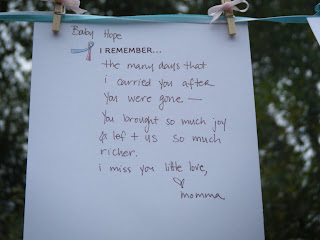 Baby Hope
I REMEMBER...
the many days that
i carried you after
you were gone —
you brought so much joy
& left us so much
richer.
i miss you little love,
momma